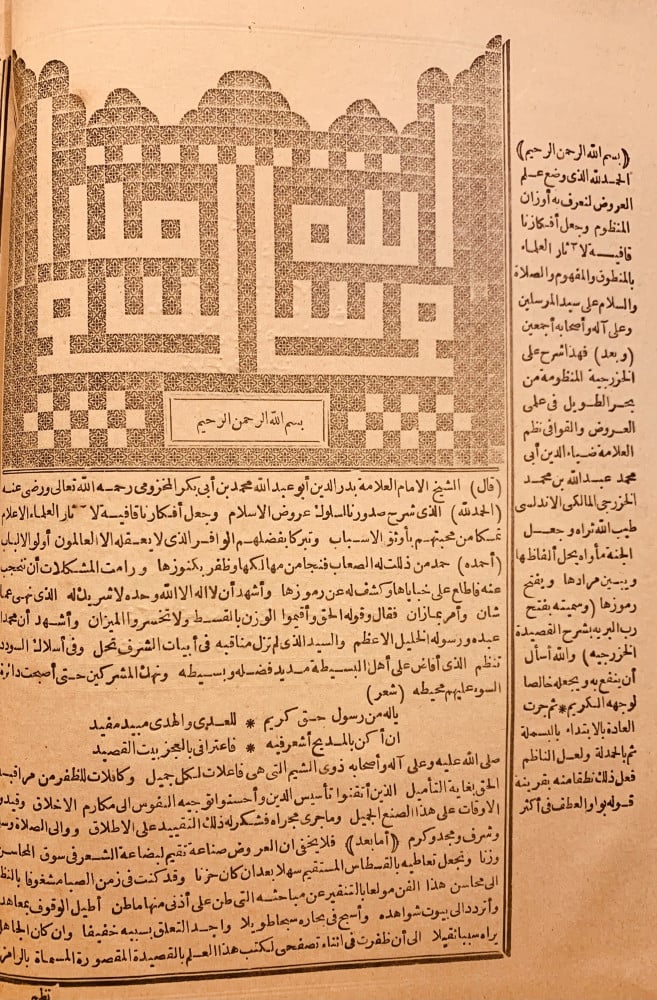 بسم الله الرحمن الرحيم
(قال) الشيخ الامام العلامة بدر الدين أبو عبد الله محمد بن أبي بكر المخزومي رحمه الله تعالى ورضى عنه
(الحمد لله) الذي شرح صدورنا لسلوك عروض الاسلام وجعل أفكارنا قافية لآثار العلماء الاعلام
تمسكا من محبتهم بأوثق الاسباب وتبركا بفضلهم الوافر الذي لا يعقله الا العالمون أولو الالباب
(أحمده) حمد من ذللت له الصعاب فنجا من مهالكها وظفر بكنوزها ورامت المشكلات أن تحجب
عنه فاطلع على خباياها وكشف له عن رموزها وأشهد أن لا اله الا الله وحده لا شريك له الذي نهى عما
شان وأمر بما زان فقال وقوله الحق وأقيموا الوزن بالقسط ولا تخسروا الميزان وأشهد أن محمدا
عبده ورسوله الخليل الاعظم والسيد الذي لم تزل مناقبه في أبيات الشرف تحل وفي أسلاك السودد
تنظم الذي أفاض على أهل البسيطة مديد فضله وبسيطه ونهك المشركين حتى أصبحت دائرة
السوء عليهم محيطه (شعر)
ياله من رسول حق كريم * للعدى والهدى مبيد مفيد
ان أكن بالمديح أشعر فيه * فاعترافي بالعجز بيت القصيد
صلى الله عليه وعلى آله وأصحابه ذوى الشيم التي هي فاعلات لكل جميل وكافلات للظفر من مراقبة
الحق بغاية التأميل الذين أتقنوا تأسيس الدين وأحسنوا توجيه النفوس الى مكارم الاخلاق وقيدوا
الاوقات على هذا الصنع الجميل وما جرى مجراه فشكر له ذلك التقييد على الاطلاق ووالى الصلاة
وشرف ومجد وكرم (أما بعد) فلا يخفى ان العروض صناعة تقيم لبضاعة الشعر في سوق المحاسن
وزنا وتجعل تعاطيه بالقسطاس المستقيم سهلا بعد ان كان حزنا وقد كنت في زمن الصبا مشغوفا بالنظر
الى محاسن هذا الفن مولعا بالتنفير عن مباحثه التي طن على أذنى منها ماطن أطيل الوقوف بمعاهده
وأتردد الى بيوت شواهده وأسبح في بحاره سبحا طويلا واجد التعلق بسببه خفيفا وان كان الجاهل
يراه سببا ثقيلا الى أن ظفرت في اثناء تصفحى لكتب هذا العلم بالقصيدة المقصورة المسماة بالرامزة
نظم
(بسم الله الرحمن الرحيم)
الحمد لله الذي وضع علم
العروض لنعرف به أوزان
المنظوم وجعل أفكارنا
قافية لآثار العلماء
بالمنطوق والمفهوم والصلاة
والسلام على سيد المرسلين
وعلى آله وأصحابه أجمعين
(وبعد) فهذا شرح على
الخزرجية المنظومة من
بحر الطويل في علمى
العروض والقوافي نظم
العلامة ضياء الدين أبي
محمد عبد الله بن محمد
الخزرجى المالكى الاندلسى
طيب الله ثراه وجعل
الجنة مأواه يحل ألفاظها
ويبين مرادها ويفتح
رموزها (وسميته بفتح
رب البريه بشرح القصيدة
الخزرجيه) والله أسأل
أن ينفع به ويجعله خالصا
لوجهه الكريم * ثم جرت
العادة بالابتداء بالبسملة
ثم بالحمدلة ولعل الناظم
فعل ذلك نطقا منه بقرينة
قوله بواو العطف في أكثر